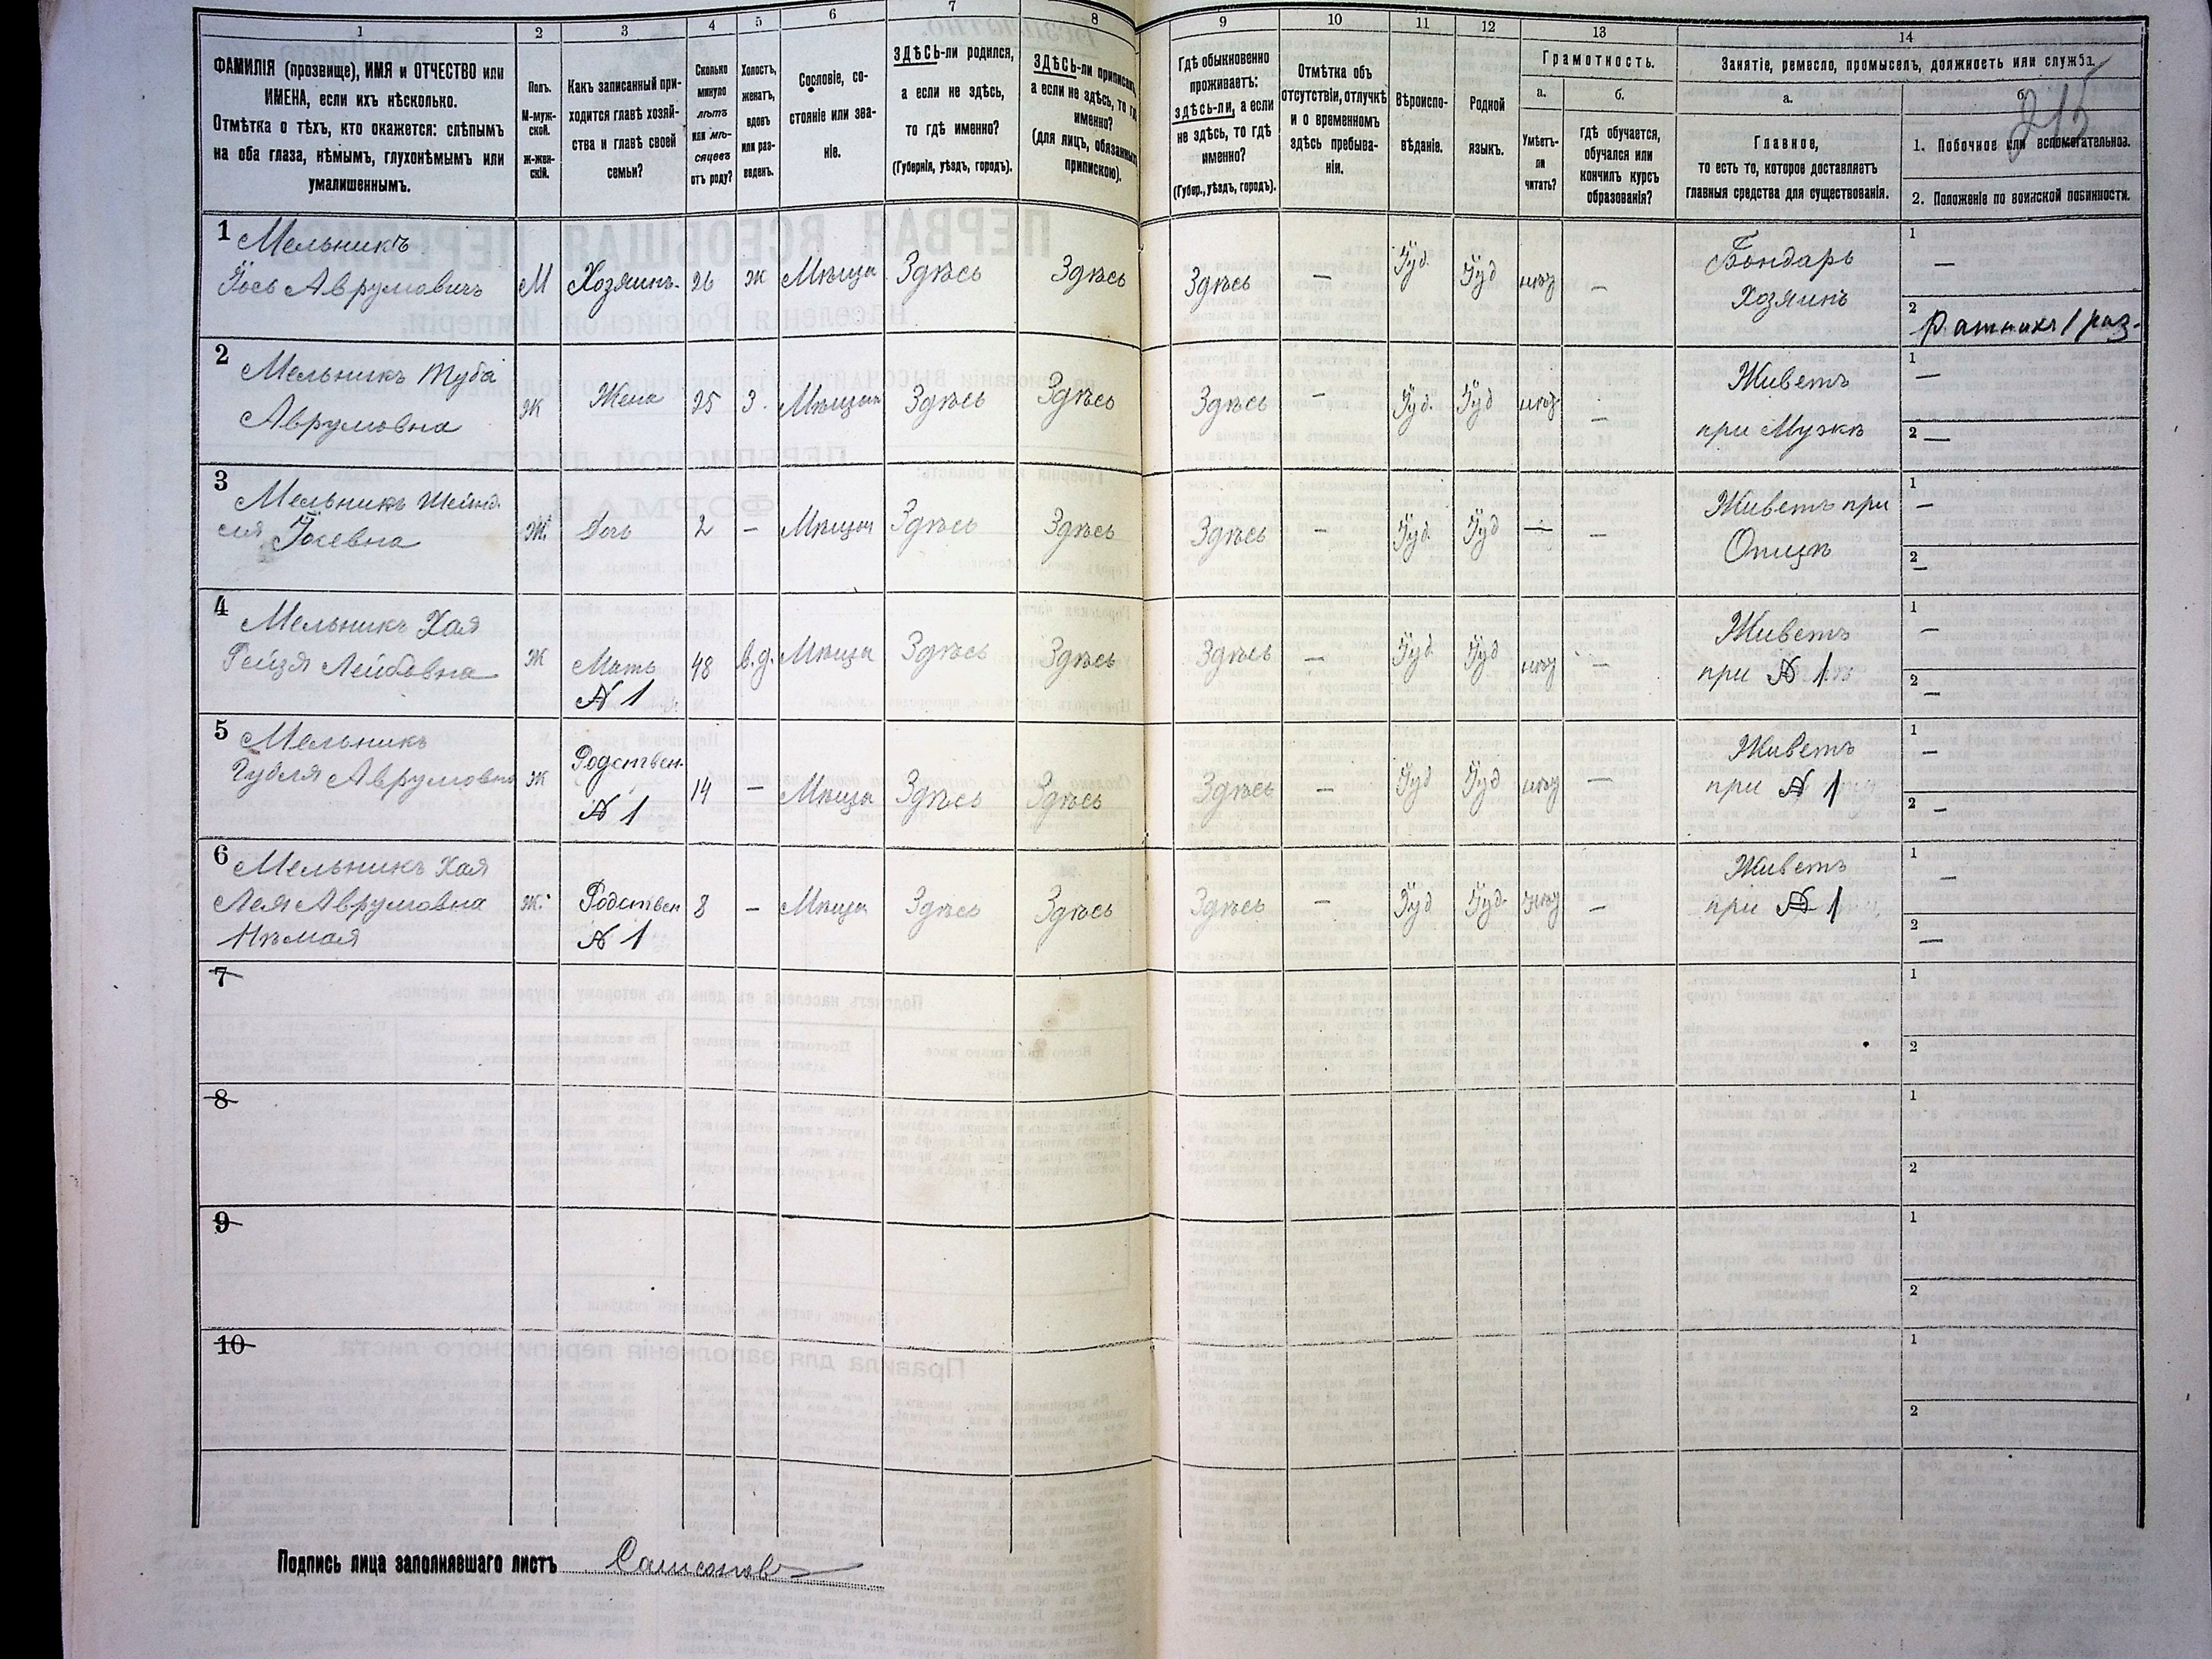 1
2
3
4
5
6
7
8
9
10
11
12
13
14
ФАМИЛІЯ (прозвище), ИМЯ и ОТЧЕСТВО или
ИМЕНА, если ихъ нѣсколько.
Отмѣтка о тѣхъ, кто окажется: слѣпымъ
на оба глаза, нѣмымъ, глухонѣмымъ или
умалишеннымъ.
Полъ.
М-муж-
ской.
ж-жен-
скій.
Какъ записанный при-
ходится главѣ хозяй-
ства и главѣ своей
семьи?
Сколько
минуло
лѣтъ
или мѣ-
сяцевъ
отъ роду?
Холостъ,
женатъ,
вдовъ
или раз-
веденъ.
Сословіе, со-
стояніе или зва-
ніе.
ЗДѢСЬ-ли родился,
а если не здѣсь,
то гдѣ именно?
(Губернія, уѣздъ, городъ).
ЗДѢСЬ-ли приписанъ,
а если не здѣсь, то гдѣ
именно?
(для лицъ, обязанныхъ
припискою).
Гдѣ обыкновенно
проживаетъ:
здѣсь-ли, а если
не здѣсь, то гдѣ
именно?
(Губер., уѣздъ, городъ).
Отмѣтка объ
отсутствіи, отлучкѣ
и о временномъ
здѣсь пребыва-
ніи.
Вѣроиспо-
вѣданіе.
Родной
языкъ.
Грамотность.
а.
Умѣетъ-
ли
читать?
б.
Гдѣ обучается,
обучался или
кончилъ курсъ
образованія?
Занятіе, ремесло, промыселъ, должность или служба.
а.
Главное,
то есть то, которое доставляетъ
главныя средства для существованія.
б.
215
1. Побочное или вспомогательное.
2. Положеніе по воинской повинности.
1 Мельникъ
Іось Аврумовичъ
М Хозяинъ. 26 ж Мѣща Здѣсь Здѣсь Здѣсь — Іуд. Іуд нѣт —
Бондарь
Хозяинъ
1 —
2 Ратникъ 1 раз.
2 Мельникъ Туба
Аврумовна
ж Жена 25 З. Мѣщан Здѣсь Здѣсь Здѣсь — Іуд. Іуд нѣт —
Живетъ
при Мужѣ
1 —
2 —
3 Мельникъ Шейнд.
еля Іосевна
Ж. Дочь 2 — Мѣщан Здѣсь Здѣсь Здѣсь — Іуд. Іуд — —
Живетъ при
Отцѣ
1 —
2 —
4 Мельникъ Хая
Рейзя Лейбовна
Ж Мать
№ 1
48 в.д. Мѣща Здѣсь Здѣсь Здѣсь — Іуд. Іуд нѣт —
Живетъ
при № 1
1 —
2 —
5 Мельникъ
Аврумовна
Ж Родствен.
№ 1
14 — Мѣща Здѣсь Здѣсь Здѣсь — Іуд Іуд нѣт —
Живетъ
при № 1
1 —
2 —
6 Мельникъ Хая
Лея Аврумовна
Нѣмая
Ж. Родствен
№ 1
8 — Мѣща Здѣсь Здѣсь Здѣсь — Іуд Іуд. нѣт —
Живетъ
при № 1
1 —
2 —
7
1
2
8
1
2
9
1
2
10
1
2
Подпись лица заполнявшаго листъ Самсонов